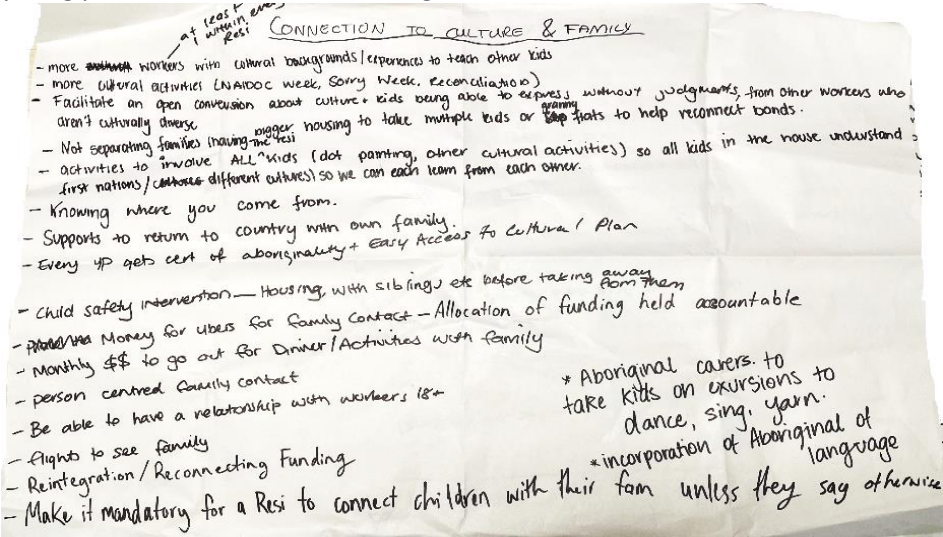 at least
1 within every
Resi
CONNECTION TO CULTURE & FAMILY
- more workers with cultural backgrounds/experiences to teach other kids
- more cultural activities (NAIDOC week, Sorry Week, Reconciliation)
- Facilitate an open conversion about culture + kids being able to express without judgments, from other workers who
aren't culturally diverse
- Not separating families (having bigger housing to take multiple kids or granny flats to help reconnect bonds.
- activities to involve ALL the resi kids (dot painting, other cultural activities) so all kids in the house understand
first nations / different cultures) so we can each learn from each other.
- Knowing where you come from.
- Supports to return to country with own family.
- Every YP gets cert of aboriginality + Easy Access to Cultural Plan
- Child safety intervention — Housing, with siblings etc before taking away from them
- Money for Ubers for family contact - Allocation of funding held accountable
- Monthly $$ to go out for Dinner/Activities with family
- person centred family contact
- Be able to have a relationship with workers 18+
- flights to see family
- Reintegration / Reconnecting Funding
* Aboriginal carers. to
take kids on exursions to
dance, sing, yarn.
*incorporation of Aboriginal of
language
- Make it mandatory for a Resi to connect children with their fam unless they say otherwise